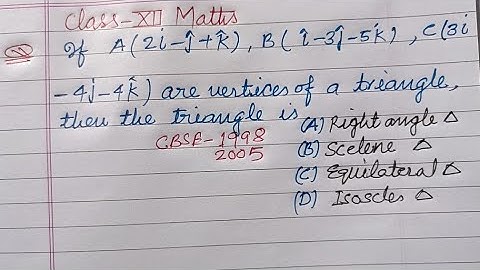 Class-XII Maths
Q If A(2i-ĵ+k̂), B(î-3ĵ-5k̂), C(3i
-4j-4k̂) are vertices of a triangle,
then the triangle is
CBSE-1998
2005
(A) Right angle △
(B) Scelene △
(C) Equilateral △
(D) Isoscles △